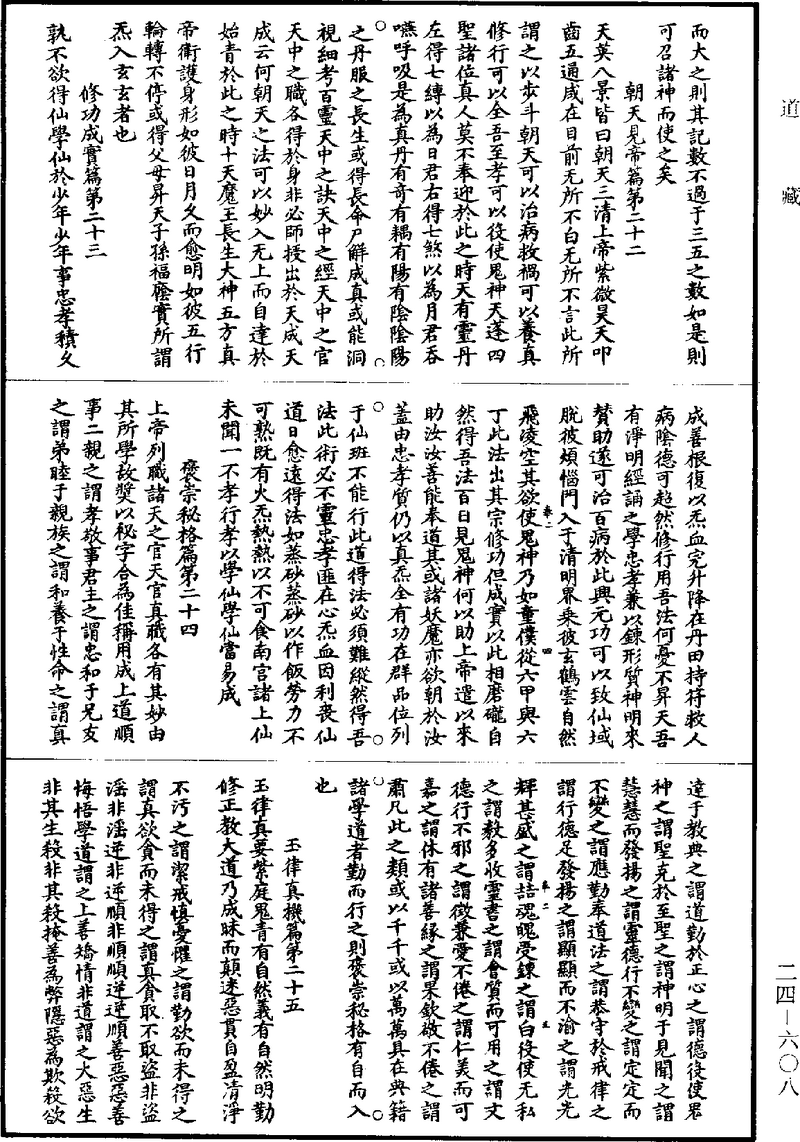 道藏
二四－六〇八
而大之則其記數不過于三五之數如是則
可召諸神而使之矣
朝天見帝篇第二十二
天英八景皆曰朝天三清上帝紫微昊天叩
齒五通咸在目前无所不白无所不言此所
謂之以步斗朝天可以治病救禍可以養真
修行可以全吾至孝可以役使鬼神天蓬四
聖諸位真人莫不奉迎於此之時天有靈丹
左得七縛以為日君右得七煞以為月君吞
嚥呼吸是為真丹有奇有耦有陽有陰陰陽
之丹服之長生或得長命尸解成真或能洞
視細考百靈天中之訣天中之經天中之官
天中之職各得於身非必師授出於天成天
成云何朝天之法可以妙入无上而自達於
始青於此之時十天魔王長生大神五方真
帝衛護身形如彼日月久而愈明如彼五行
輪轉不停或得父母昇天子孫福廕實所謂
炁入玄玄者也
修功成實篇第二十三
孰不欲得仙學仙於少年少年事忠孝積久
成善根復以炁血完升降在丹田持符救人
病陰德可超然修行用吾法何憂不昇天吾
有淨明經誦之學忠孝兼以鍊形質神明來
贊助遂可治百病於此興元功可以致仙域
脫彼煩惱門入于清明界乘彼玄鶴雲自然
飛淩空其欲使鬼神乃如童僕從六甲與六
丁此法出其宗修功但成實以此相磨礲自
然得吾法百日見鬼神何以助上帝遣以來
助汝汝善能奉道其或諸妖魔亦欲朝於汝
蓋由忠孝質仍以真炁全有功在群品位列
于仙班不能行此道得法必須難縱然得吾
法此術必不靈忠孝匪在心炁血因利喪仙
道日愈遠得法如蒸砂蒸砂以作飯勞力不
可熟既有火炁熱熱以不可食南宮諸上仙
未聞一不孝行孝以學仙學仙當易成
褒崇秘格篇第二十四
上帝列職諸天之官天官真職各有其妙由
其所學故奬以秘字合為佳稱用成上道順
事二親之謂孝敬事君主之謂忠和于兄友
之謂弟睦于親族之謂和養于性命之謂真
達于教典之謂道勤於正心之謂德役使衆
神之謂聖充於至聖之謂神明于見聞之謂
慧慧而發揚之謂靈德行不變之謂定定而
不變之謂應勤奉道法之謂恭守於戒律之
謂行德足發揚之謂顯顯而不渝之謂光光
輝甚盛之謂喆魂魄受鍊之謂白役使无私
之謂教多收靈書之謂會質而可用之謂文
德行不邪之謂徵兼愛不倦之謂仁美而可
嘉之謂休有諸善緣之謂果欽敬不倦之謂
肅凡此之類或以千千或以萬萬具在典籍
諸學道者勤而行之則褒崇秘格有自而入
也
玉律真機篇第二十五
玉律真要紫庭鬼青有自然義有自然明勤
修正教大道乃成昧而顛迷惡貫自盈清淨
不汚之謂潔戒慎憂懼之謂勤欲而未得之
謂真欲貪而未得之謂真貪取不取盜非盜
淫非淫逆非逆順非順順逆逆順善惡惡善
悔悟學道謂之上善矯情非道謂之大惡生
非其生殺非其殺掩善為弊隱惡為欺殺欲